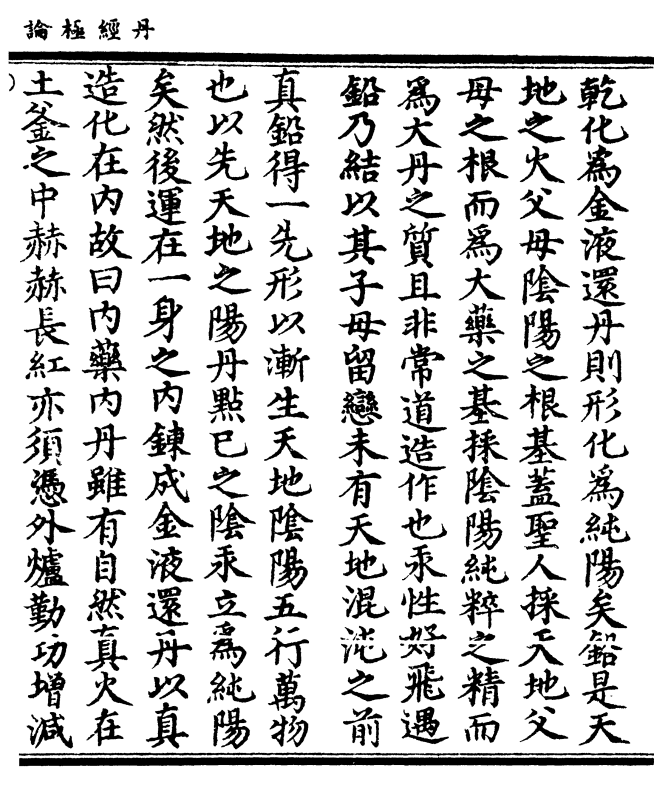 丹經極論
乾化為金液還丹則形化為純陽矣鉛是天
地之火父母陰陽之根基蓋聖人採天地父
母之根而為大藥之基採陰陽純粹之精而
為大丹之質且非常道造作也汞性好飛遇
鉛乃結以其子母留戀未有天地混沌之前
真鉛得一先形以漸生天地陰陽五行萬物
也以先天地之陽丹點已之陰汞立為純陽
矣然後運在一身之內鍊成金液還丹以真
造化在內故曰內藥內丹雖有自然真火在
土釜之中赫赫長紅亦須憑外爐勤功增減